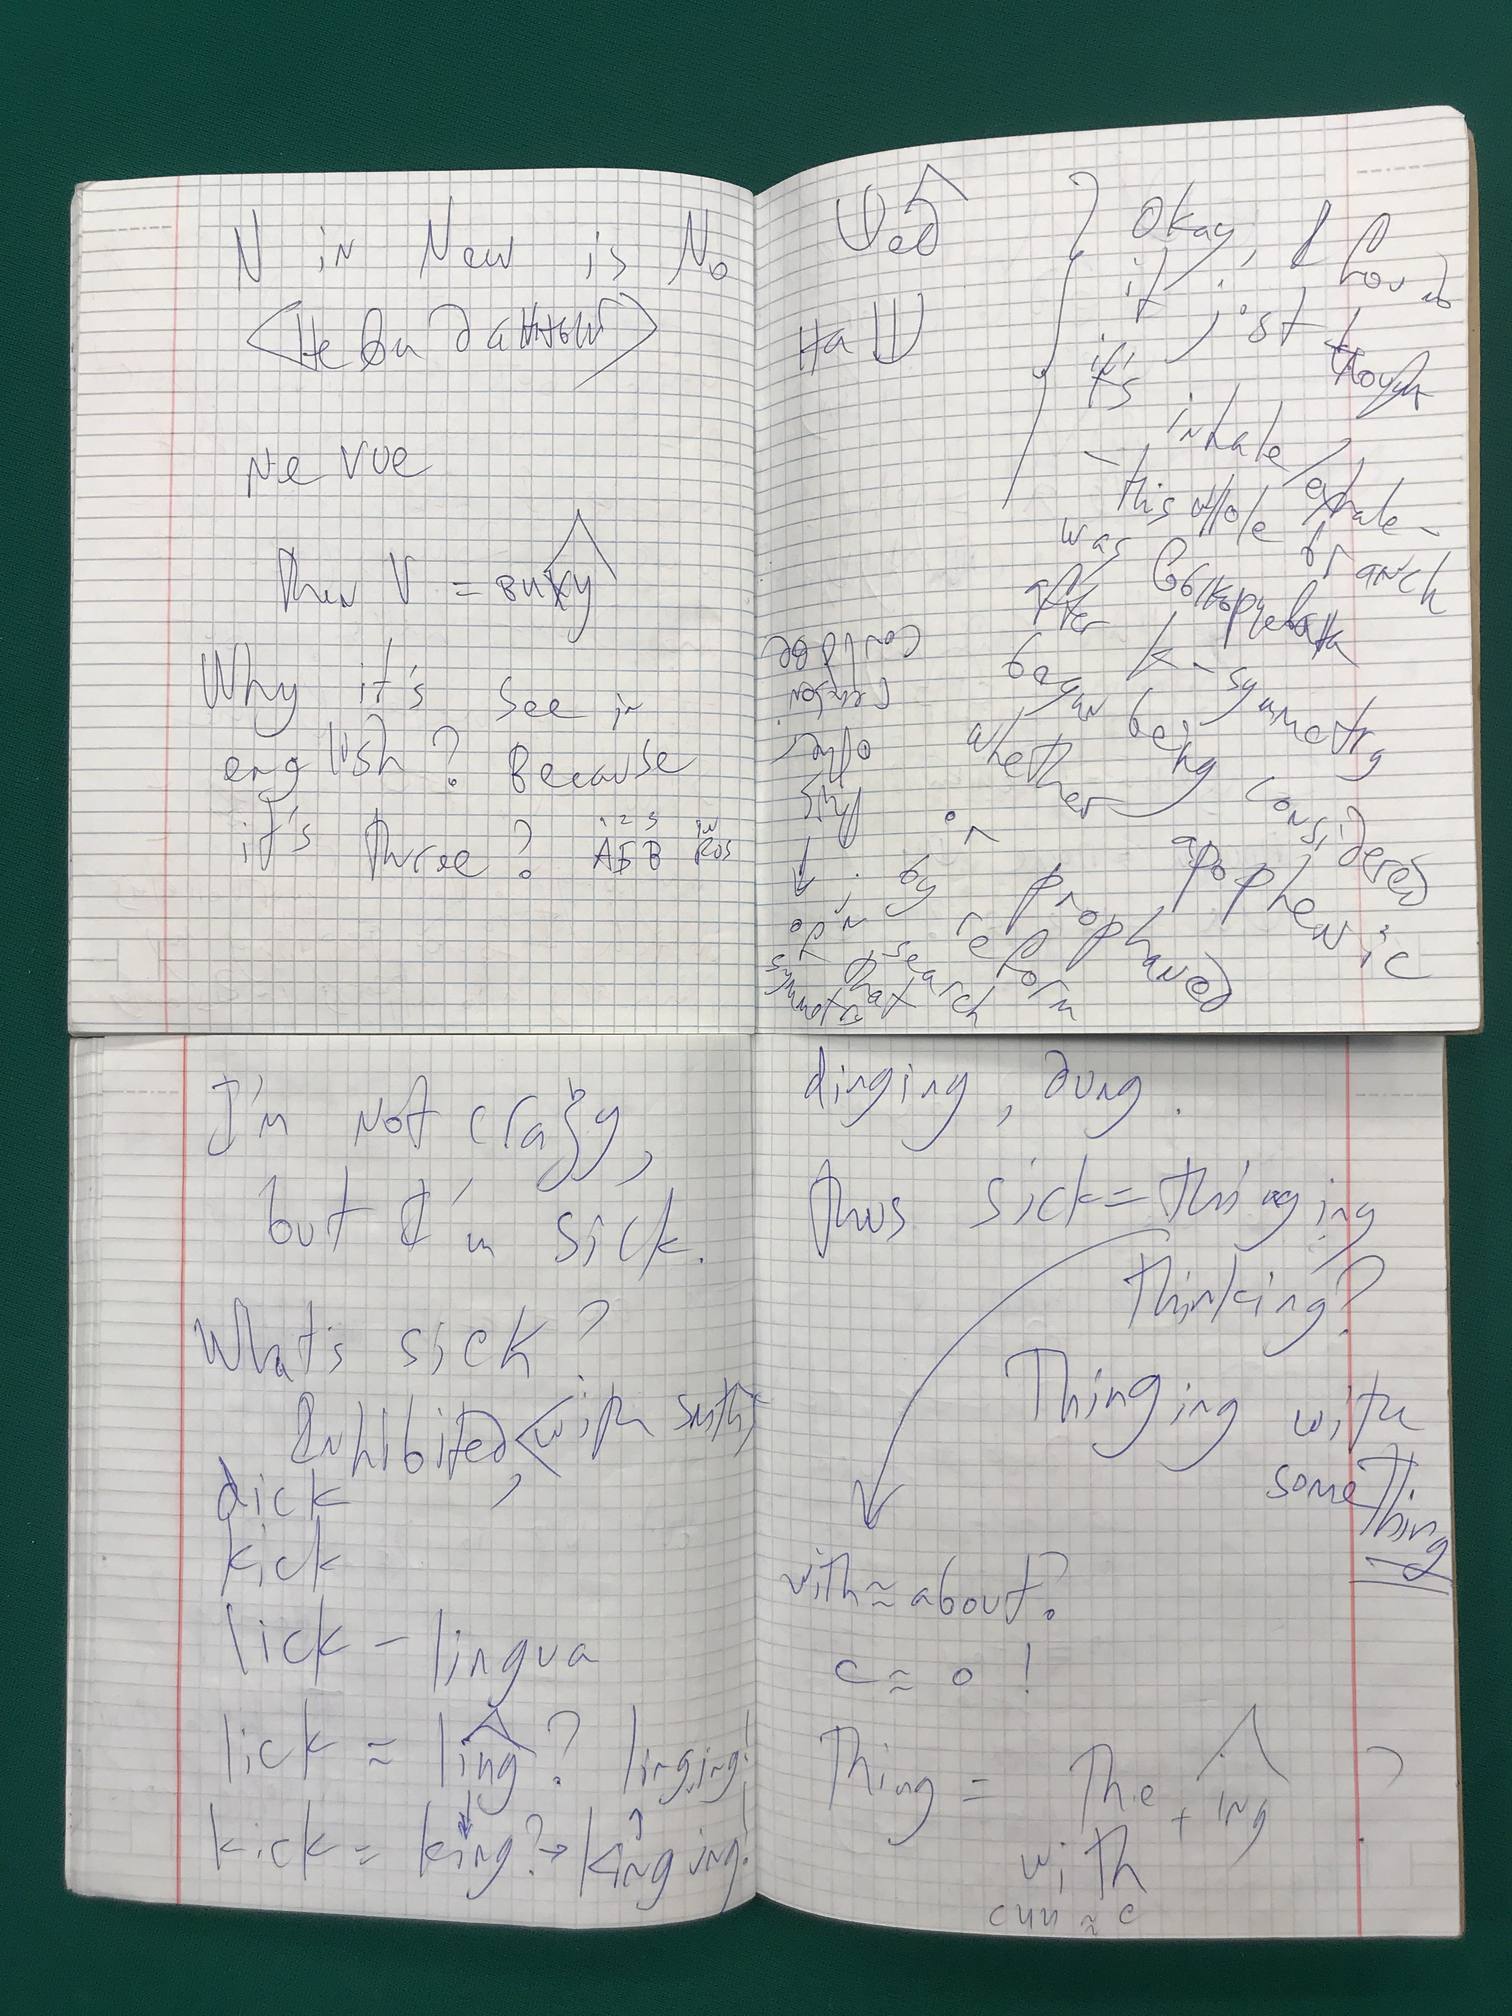 N in New is No
<Невиданный>
Ne vue
Then V = вижу
Why it's see in
english? Because
it's three? 1 2 3 in
АБВ Rus
наш
Okay, I found
it just though
it's
inhale/exhale -
- this whole branch
was
after
began being considered
whether
apophenic
or prophaned
by reform
k-symmetry
Could be
other
this
↓
in
do
search
that
symptoms
I'm not crazy,
but I'm sick.
What's sick?
Inhibited, <with smth>
dick
kick
lick - lingua
lick ≈ ling? linging!
kick = king? → kinging!
dinging, dung.
Thus sick = thinging
thinking?
Thinging with
someThing
with ≈ about?
c ≈ o!
Thing = The + ing ?
with
си ≈ с